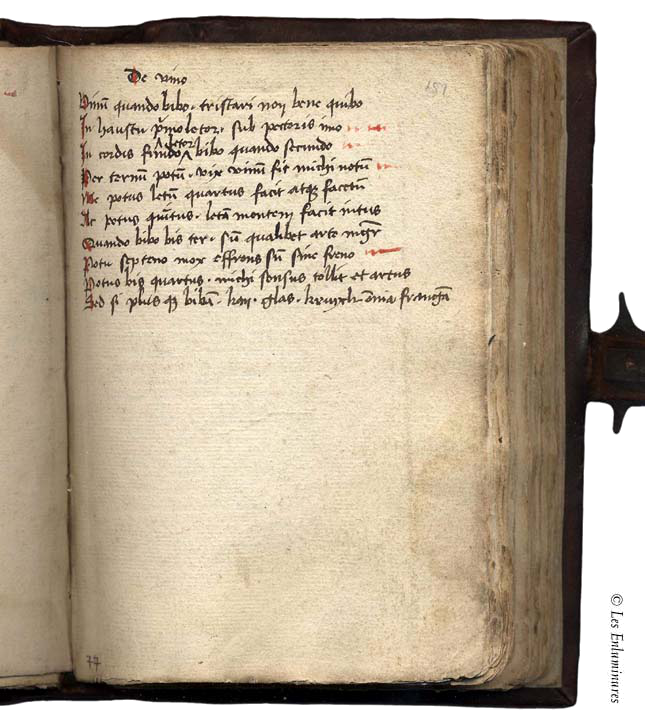 De vino
151
Vinū quando bibo · tristari non bene quibo
In haustu pͥmo letor · sub pectoris imo
In cordis fundo letor bibo quando secundo
Per terniū potū · vix vinum sit michi notū
Me potus letū quartus facit atqꝫ facetū
Ac potus quītus · letā mentem facit intus
Quando bibo bis ter · sū qualibet arte mgr̄
Potu septeno mox effrons sū sine freno
Potus bis quartus · michi sensus tollit et artus
Sed si plus bibā · kan · glas · oīa frangā
77
© Les Enluminures